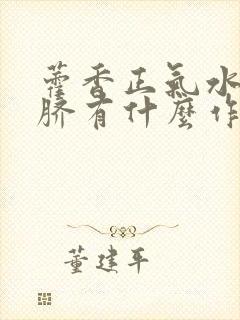 藿香正气水
脐有什麼作
董建平